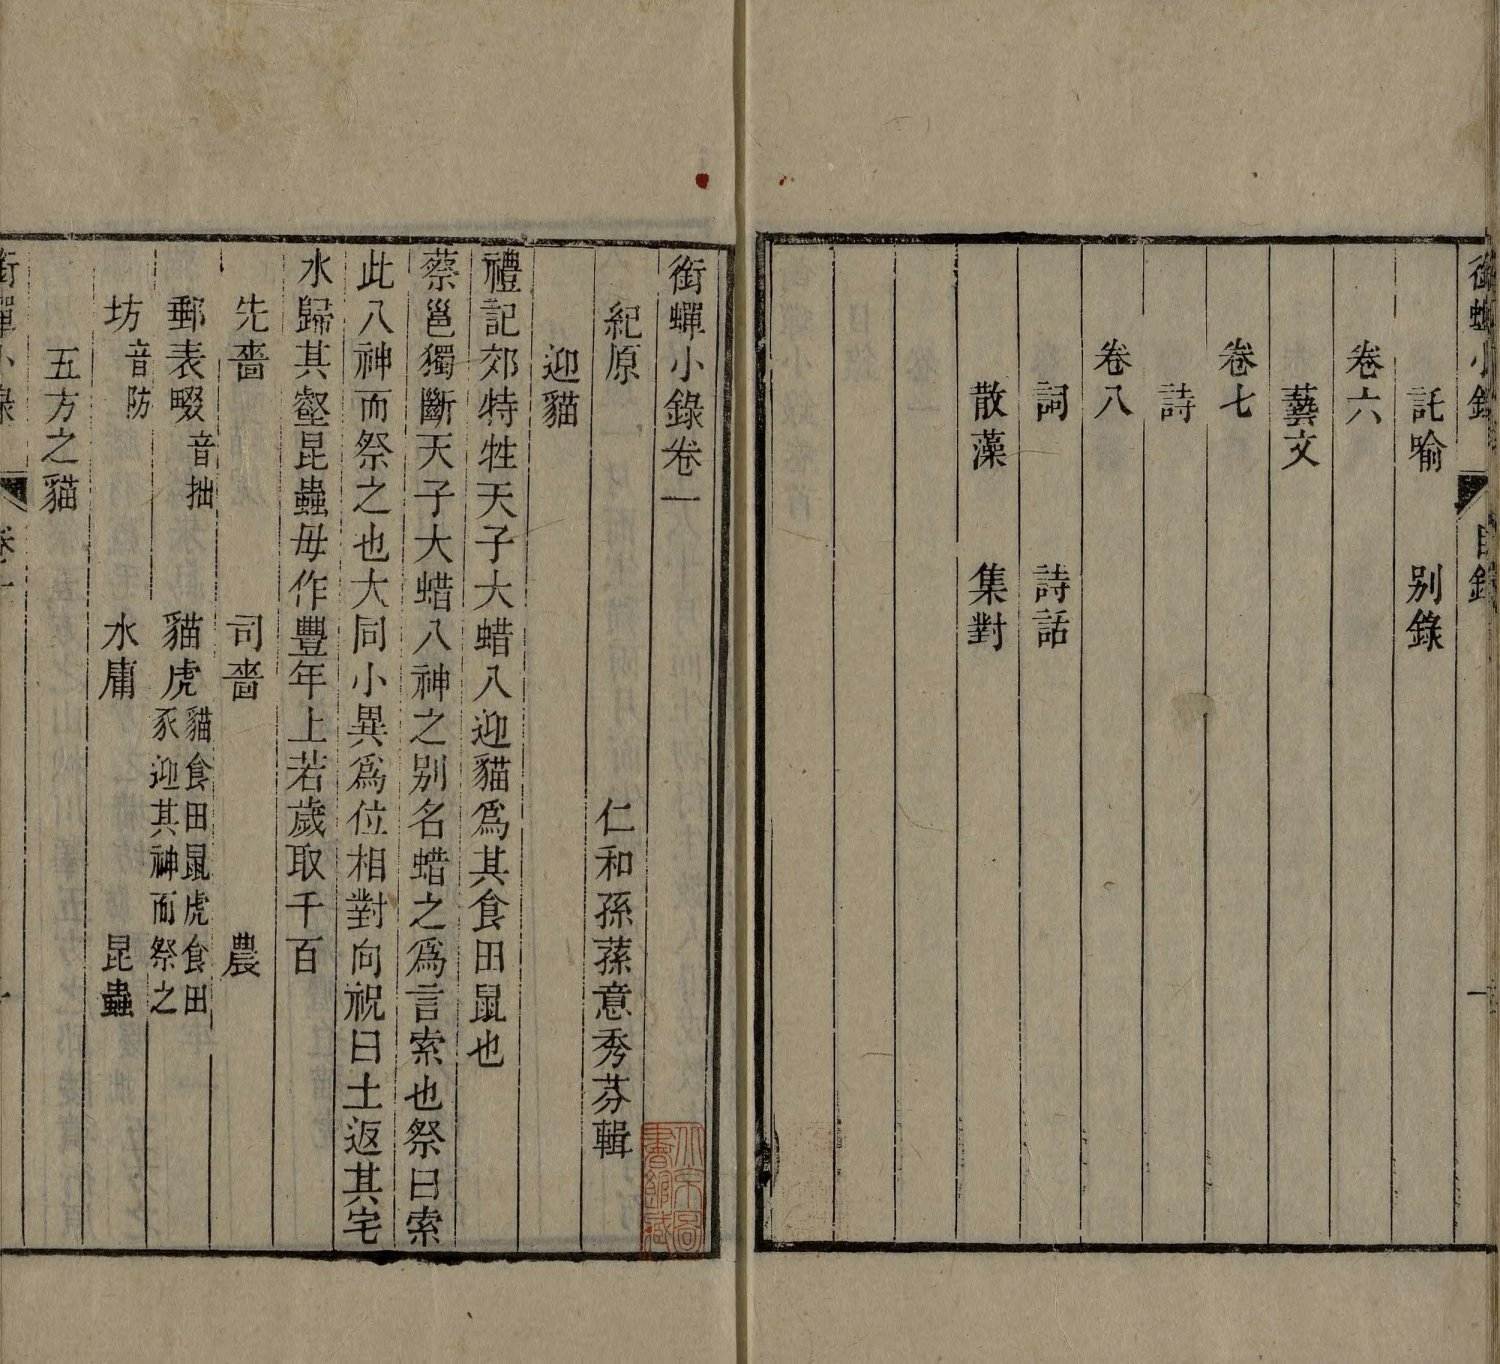 銜蟬小錄 目錄 一
託喻 别錄
卷六
藝文
卷七
詩
卷八
詞 詩話
散藻 集對
銜蟬小錄卷一
紀原 仁和孫蓀意秀芬輯
迎貓
禮記郊特牲天子大蜡八迎貓爲其食田鼠也
蔡邕獨斷天子大蜡八神之别名蜡之爲言索也祭曰索
此八神而祭之也大同小異爲位相對向祝曰土返其宅
水歸其壑昆蟲毋作豐年上若歲取千百
先嗇 司嗇 農
郵表畷音拙 貓虎貓食田鼠虎食田豕迎其神而祭之
坊音防 水庸 昆蟲
五方之貓
銜蟬小錄 卷一 一
北京圖書館藏